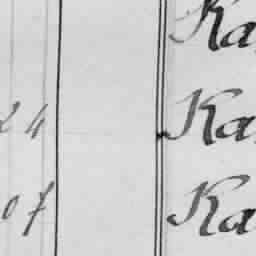 Ka
24 Ka
07 Ka